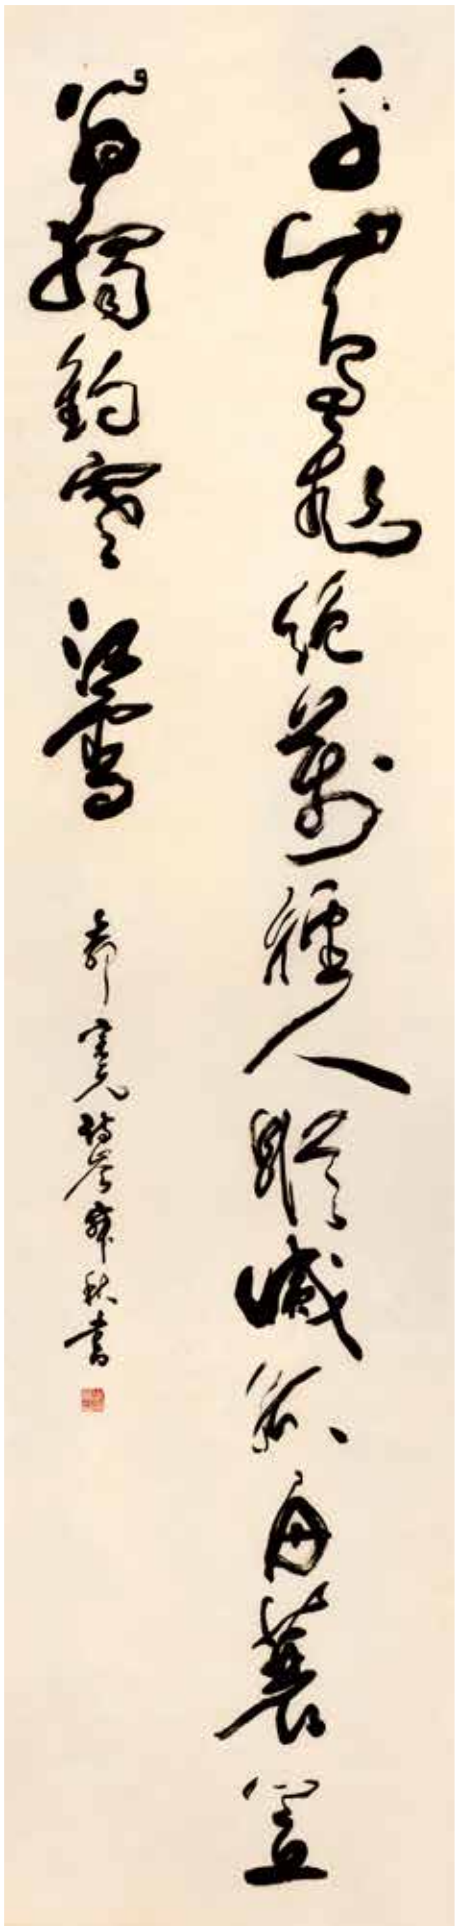 千山鳥飛絕萬徑人蹤滅孤舟蓑笠
翁獨釣寒江雪
柳宗元詩 秋書